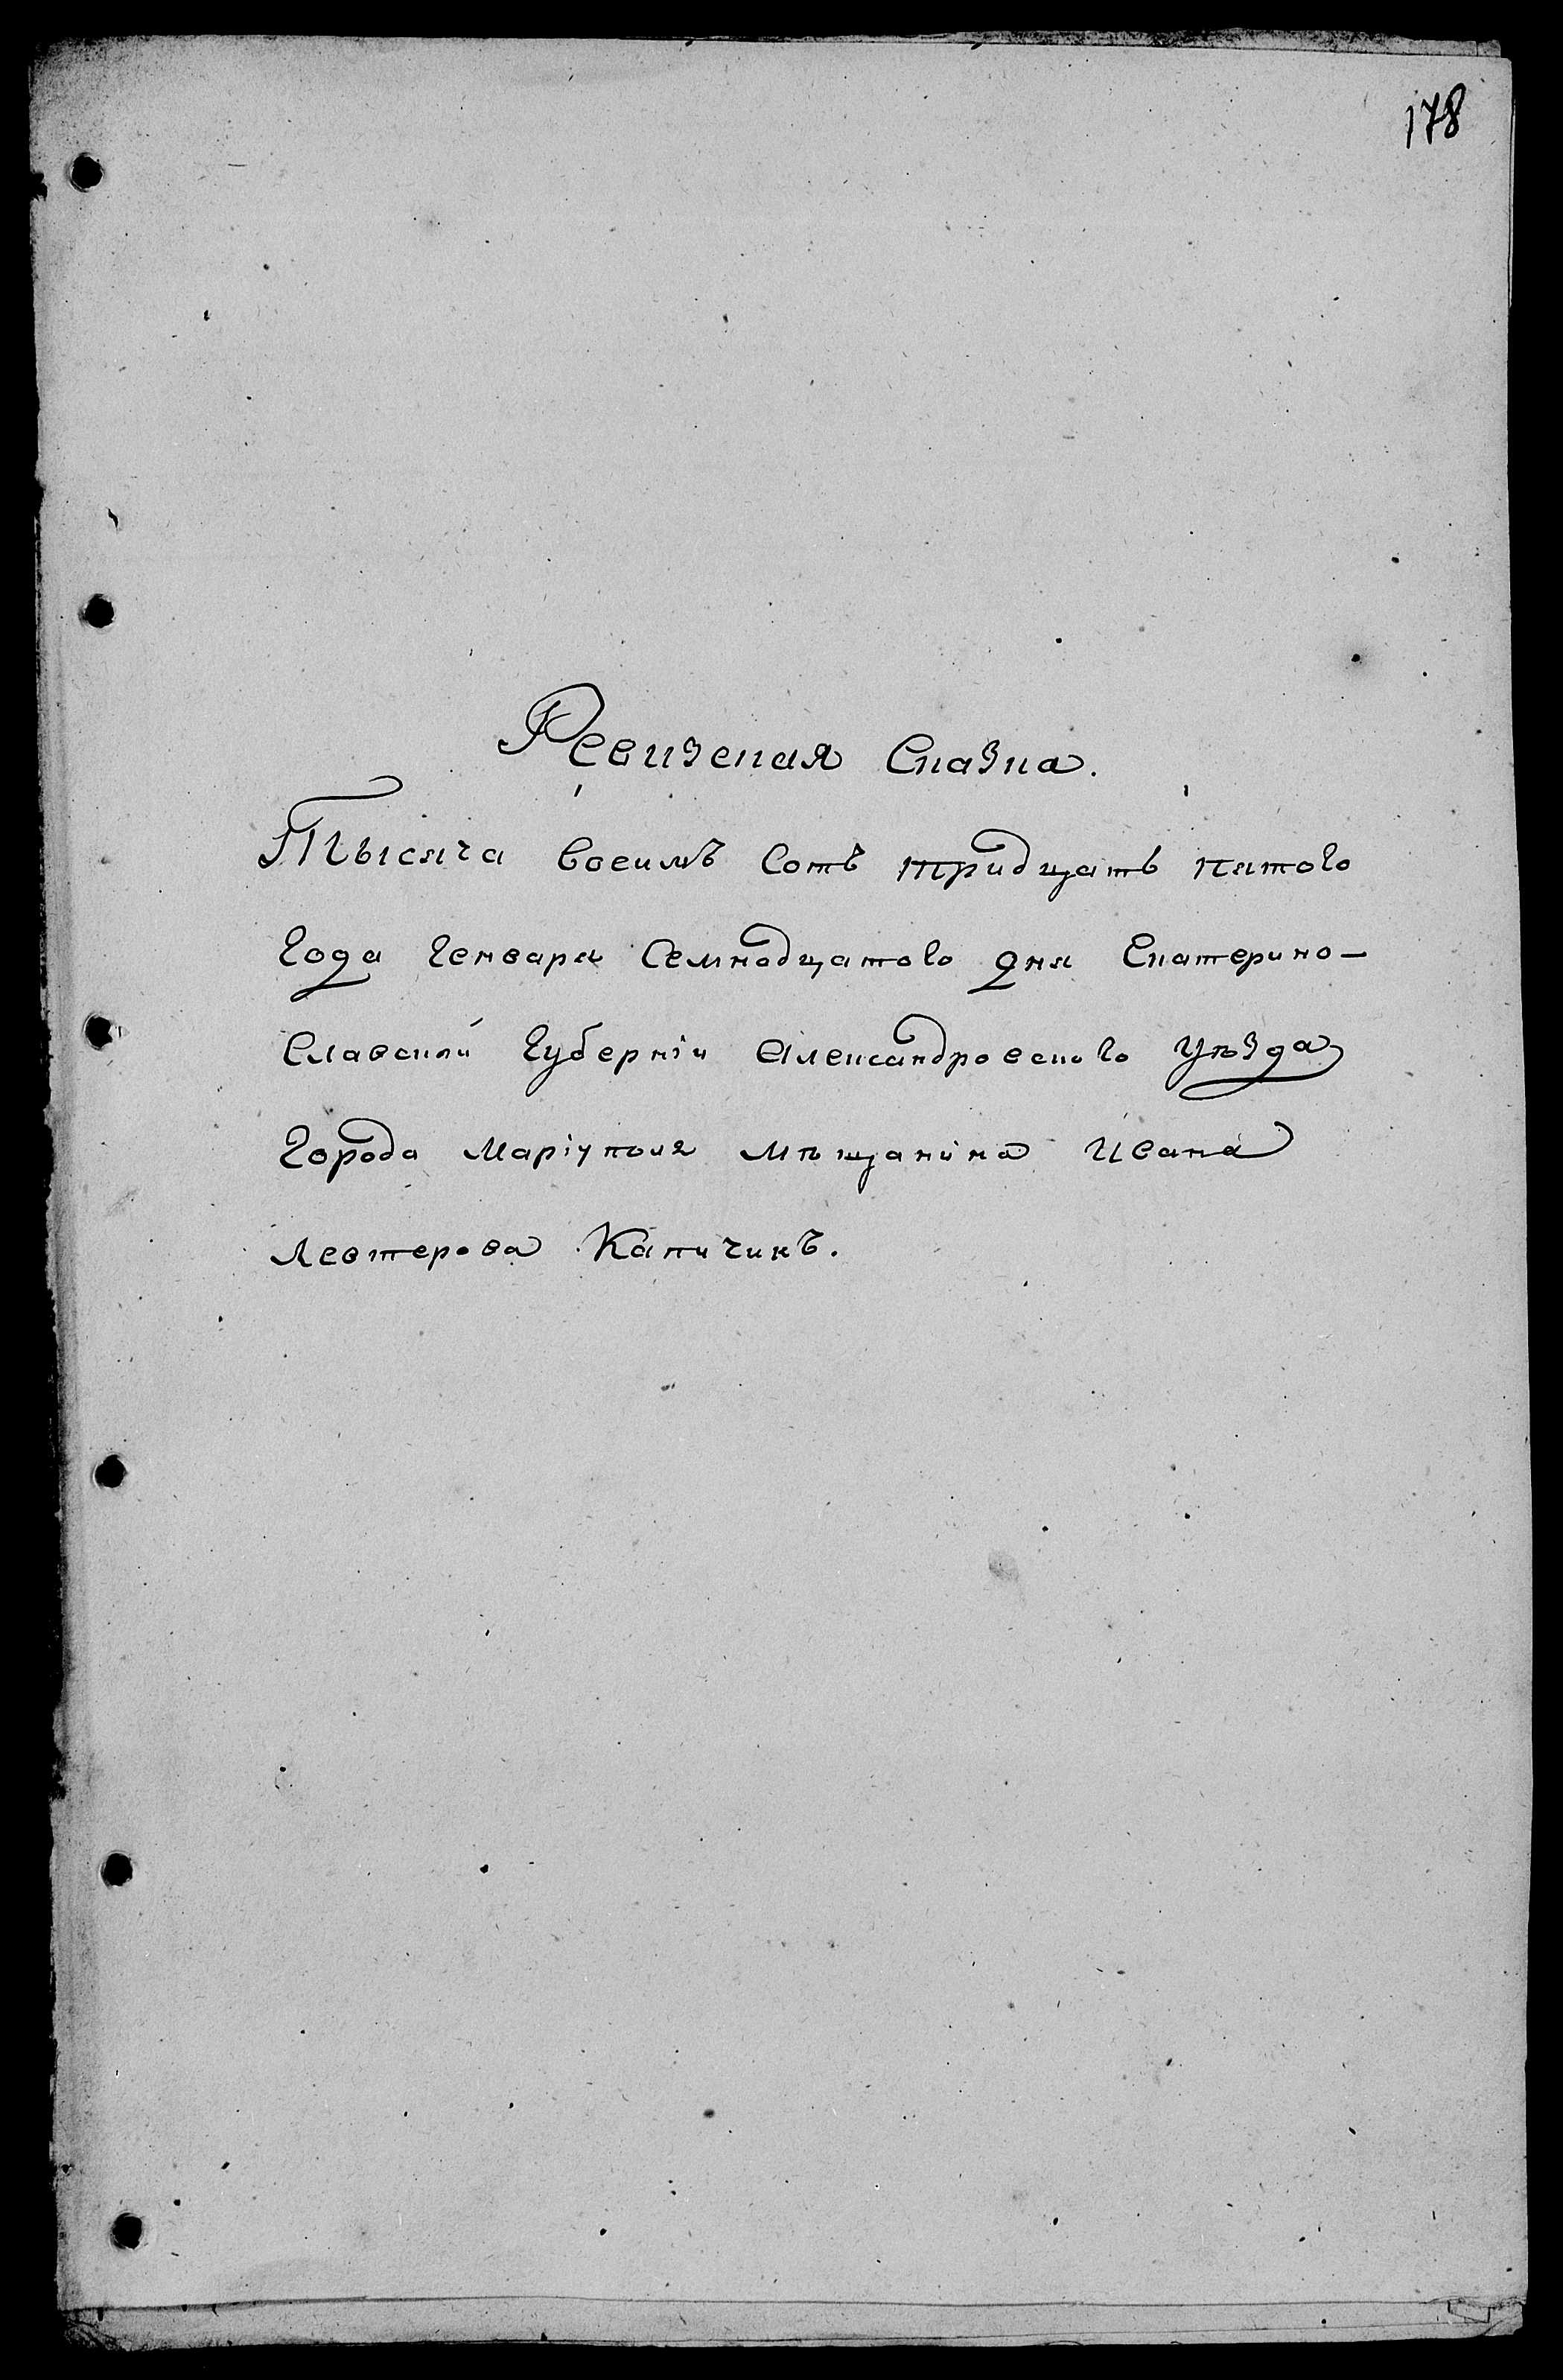 178
Ревизская Сказка.
Тысяча восимъ Сотъ тридцать пятого
Года Генваря Семнадцатого дня Екатерино-
Славской Губерніи Александровского Уѣзда
Города Маріуполя мѣщанина Ивана
Левтерова Капичинъ.